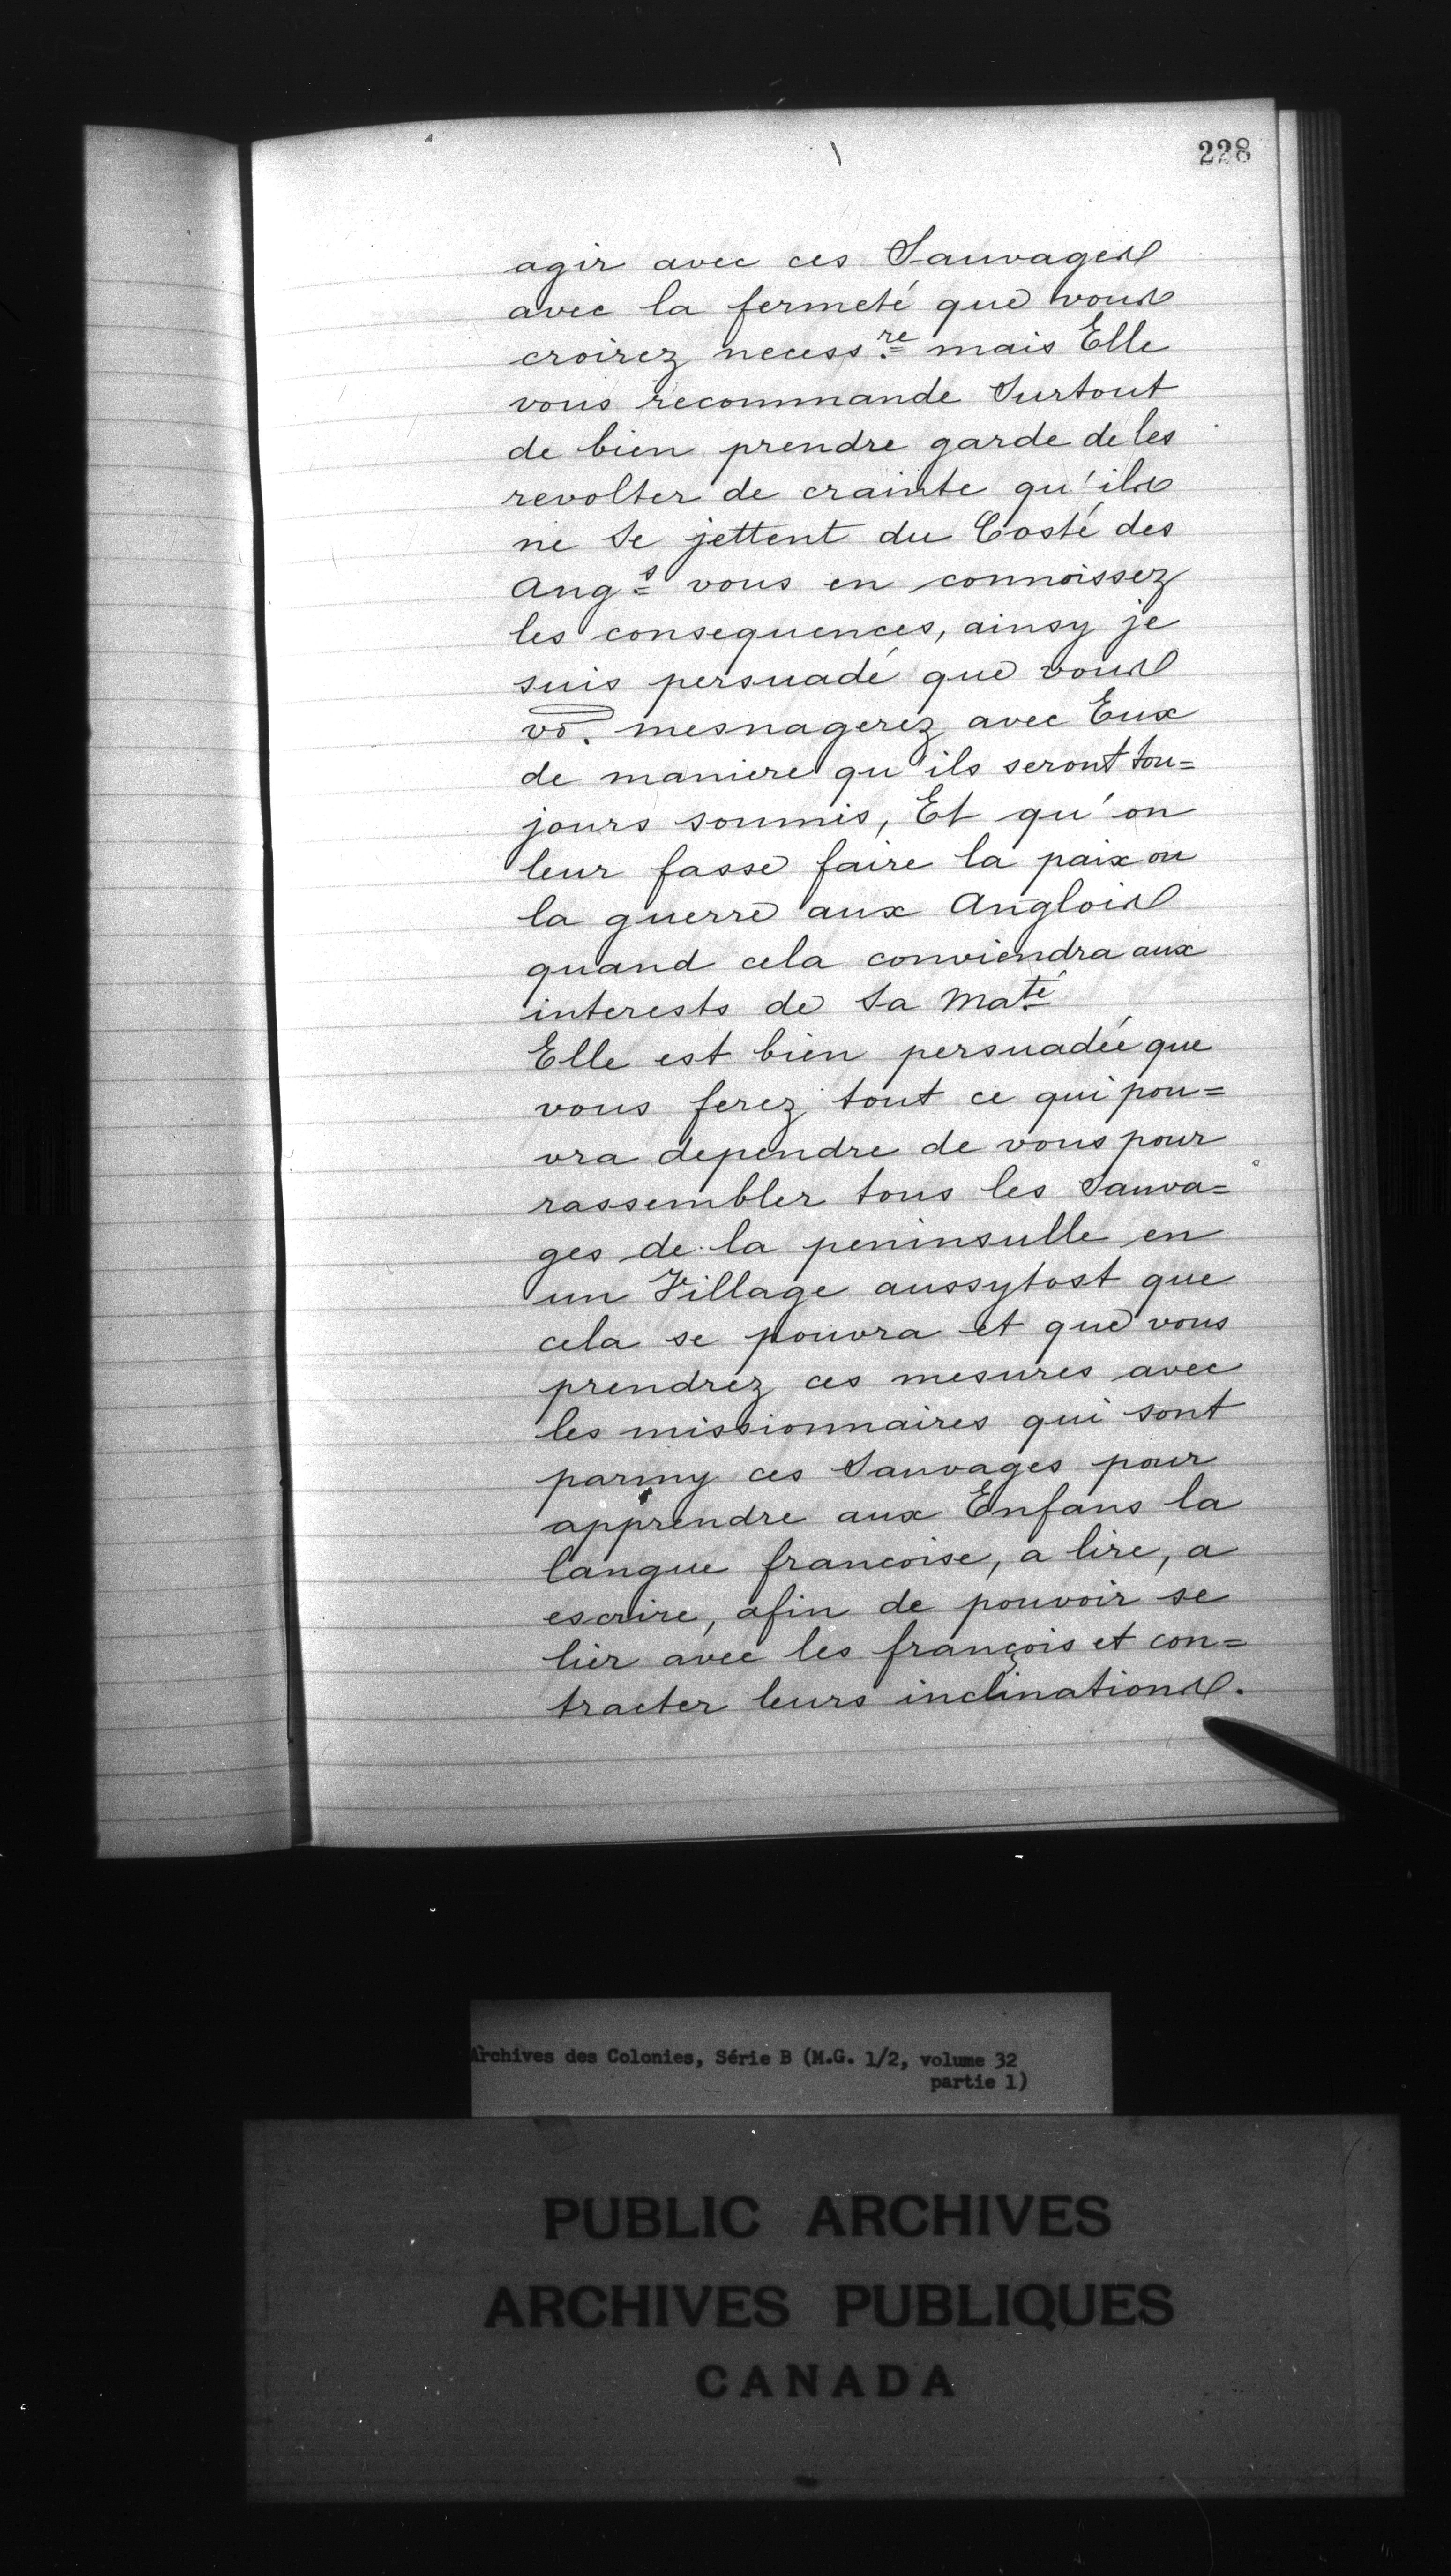 228
agir avec ces Sauvages
avec la fermeté que vous
croirez necess.re mais Elle
vous recommande Surtout
de bien prendre garde de les
revolter de crainte qu'ils
ne Se jettent du Costé des
Ang.s vous en connoissez
les consequences, ainsy je
suis persuadé que vous
vo. mesnagerez avec Eux
de maniere qu'ils seront tou=
jours soumis, Et qu'on
leur fasse faire la paix ou
la guerre aux Anglois
quand cela conviendra aux
interests de Sa Maté
Elle est bien persuadée que
vous ferez tout ce qui pou=
vra dependre de vous pour
rassembler tous les Sauva=
ges de la peninsulle en
un Village aussytost que
cela se pouvra et que vous
prendrez ces mesures avec
les missionnaires qui sont
parmy ces Sauvages pour
apprendre aux Enfans la
langue francoise, a lire, a
escrire, afin de pouvoir se
lier avec les françois et con=
tracter leurs inclinations.
Archives des Colonies, Série B (M.G. 1/2, volume 32
partie 1)
PUBLIC ARCHIVES
ARCHIVES PUBLIQUES
CANADA